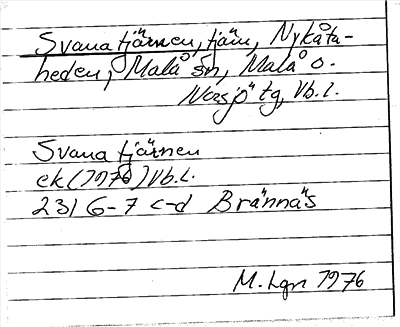 Svanatjärnen, tjärn, Nykåta-
heden, Malå sn, Malå o.
Norsjö tg, Vb.l.
Svanatjärnen
ek (1976) Vb.L.
231 6-7 c-d Brännäs
M. Lgn 1976